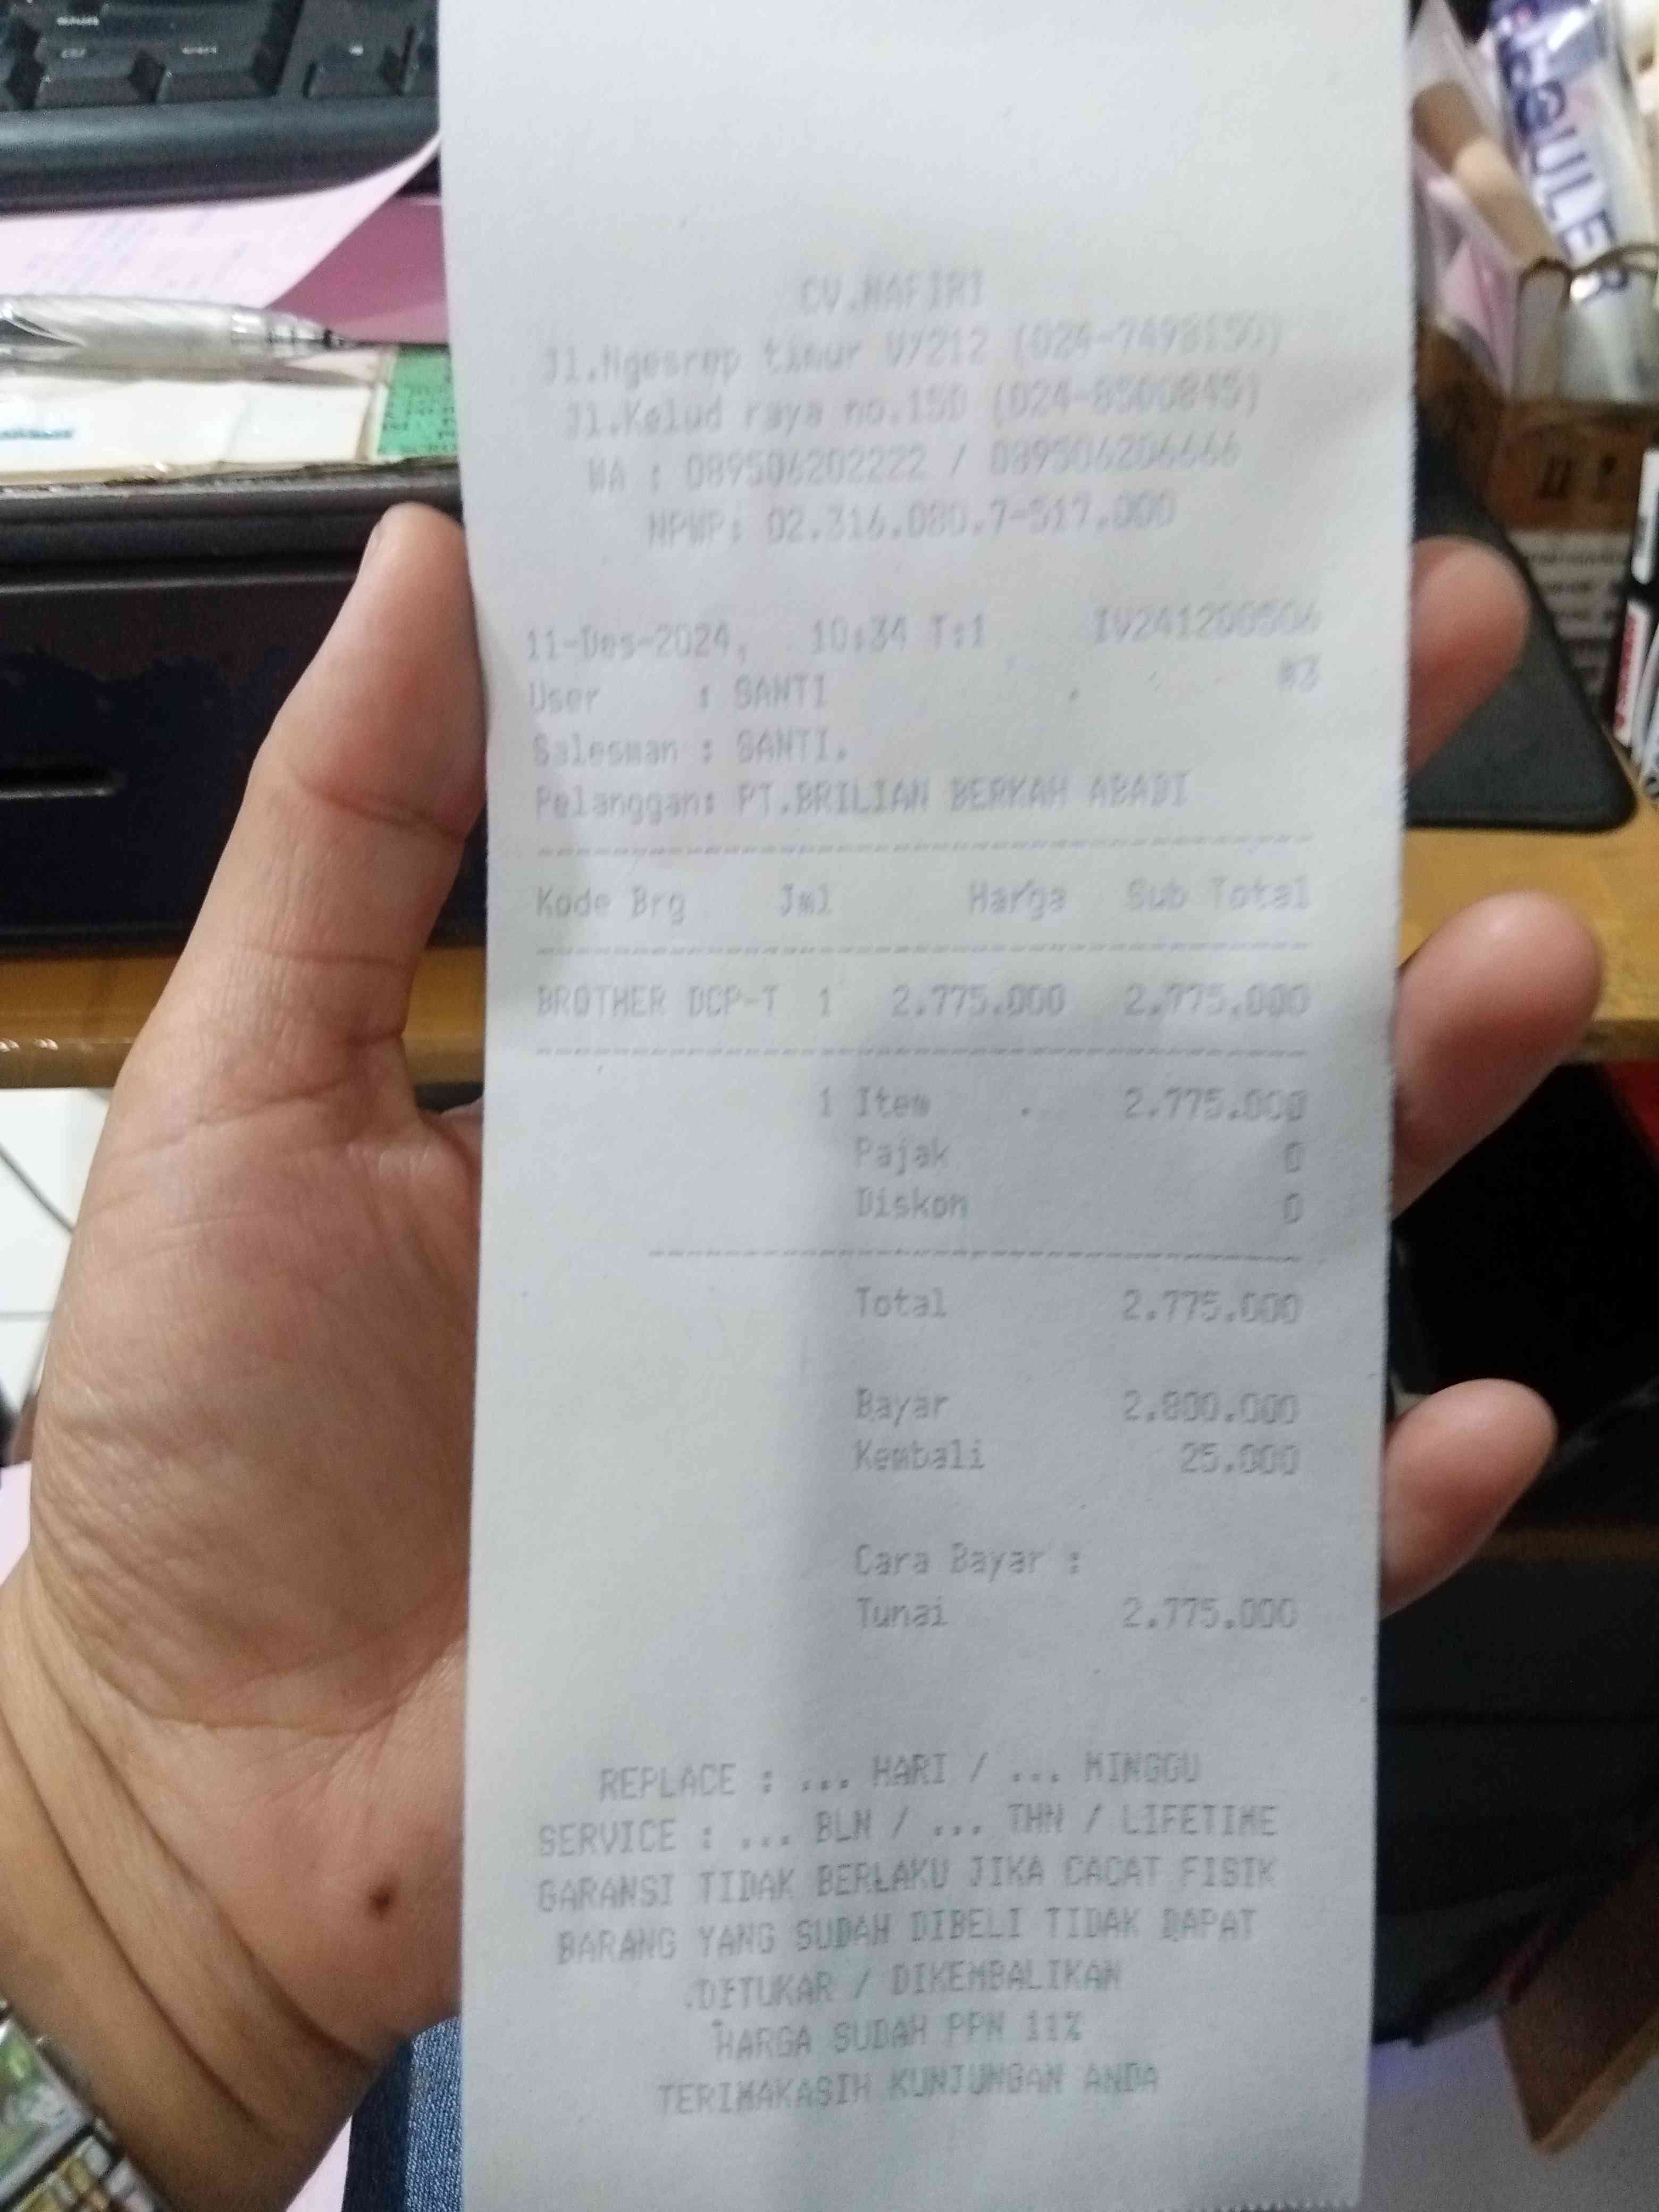 CV.NAFIRI
Jl.Ngesrep timur V/212 (024-7498150)
Jl.Kelud raya no.15D (024-8500845)
WA : 089506202222 / 089506206666
NPWP: 02.316.080.7-517.000
11-Des-2024, 10:34 T:1 IV241200506
User : SANTI #3
Salesman : SANTI.
Pelanggan: PT.BRILIAN BERKAH ABADI
Kode Brg Jml Harga Sub Total
BROTHER DCP-T 1 2.775.000 2.775.000
1 Item 2.775.000
Pajak 0
Diskon 0
Total 2.775.000
Bayar 2.800.000
Kembali 25.000
Cara Bayar :
Tunai 2.775.000
REPLACE : ... HARI / ... MINGGU
SERVICE : ... BLN / ... THN / LIFETIME
GARANSI TIDAK BERLAKU JIKA CACAT FISIK
BARANG YANG SUDAH DIBELI TIDAK DAPAT
DITUKAR / DIKEMBALIKAN
HARGA SUDAH PPN 11%
TERIMAKASIH KUNJUNGAN ANDA